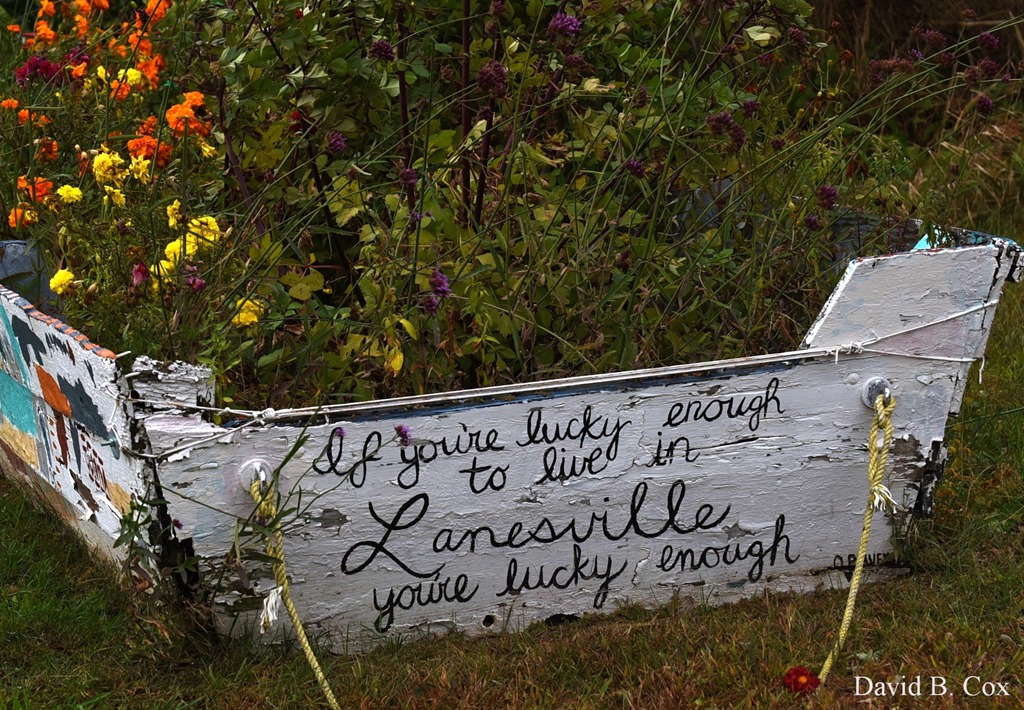 If you're lucky enough
to live in
Lanesville
you're lucky enough
David B. Cox